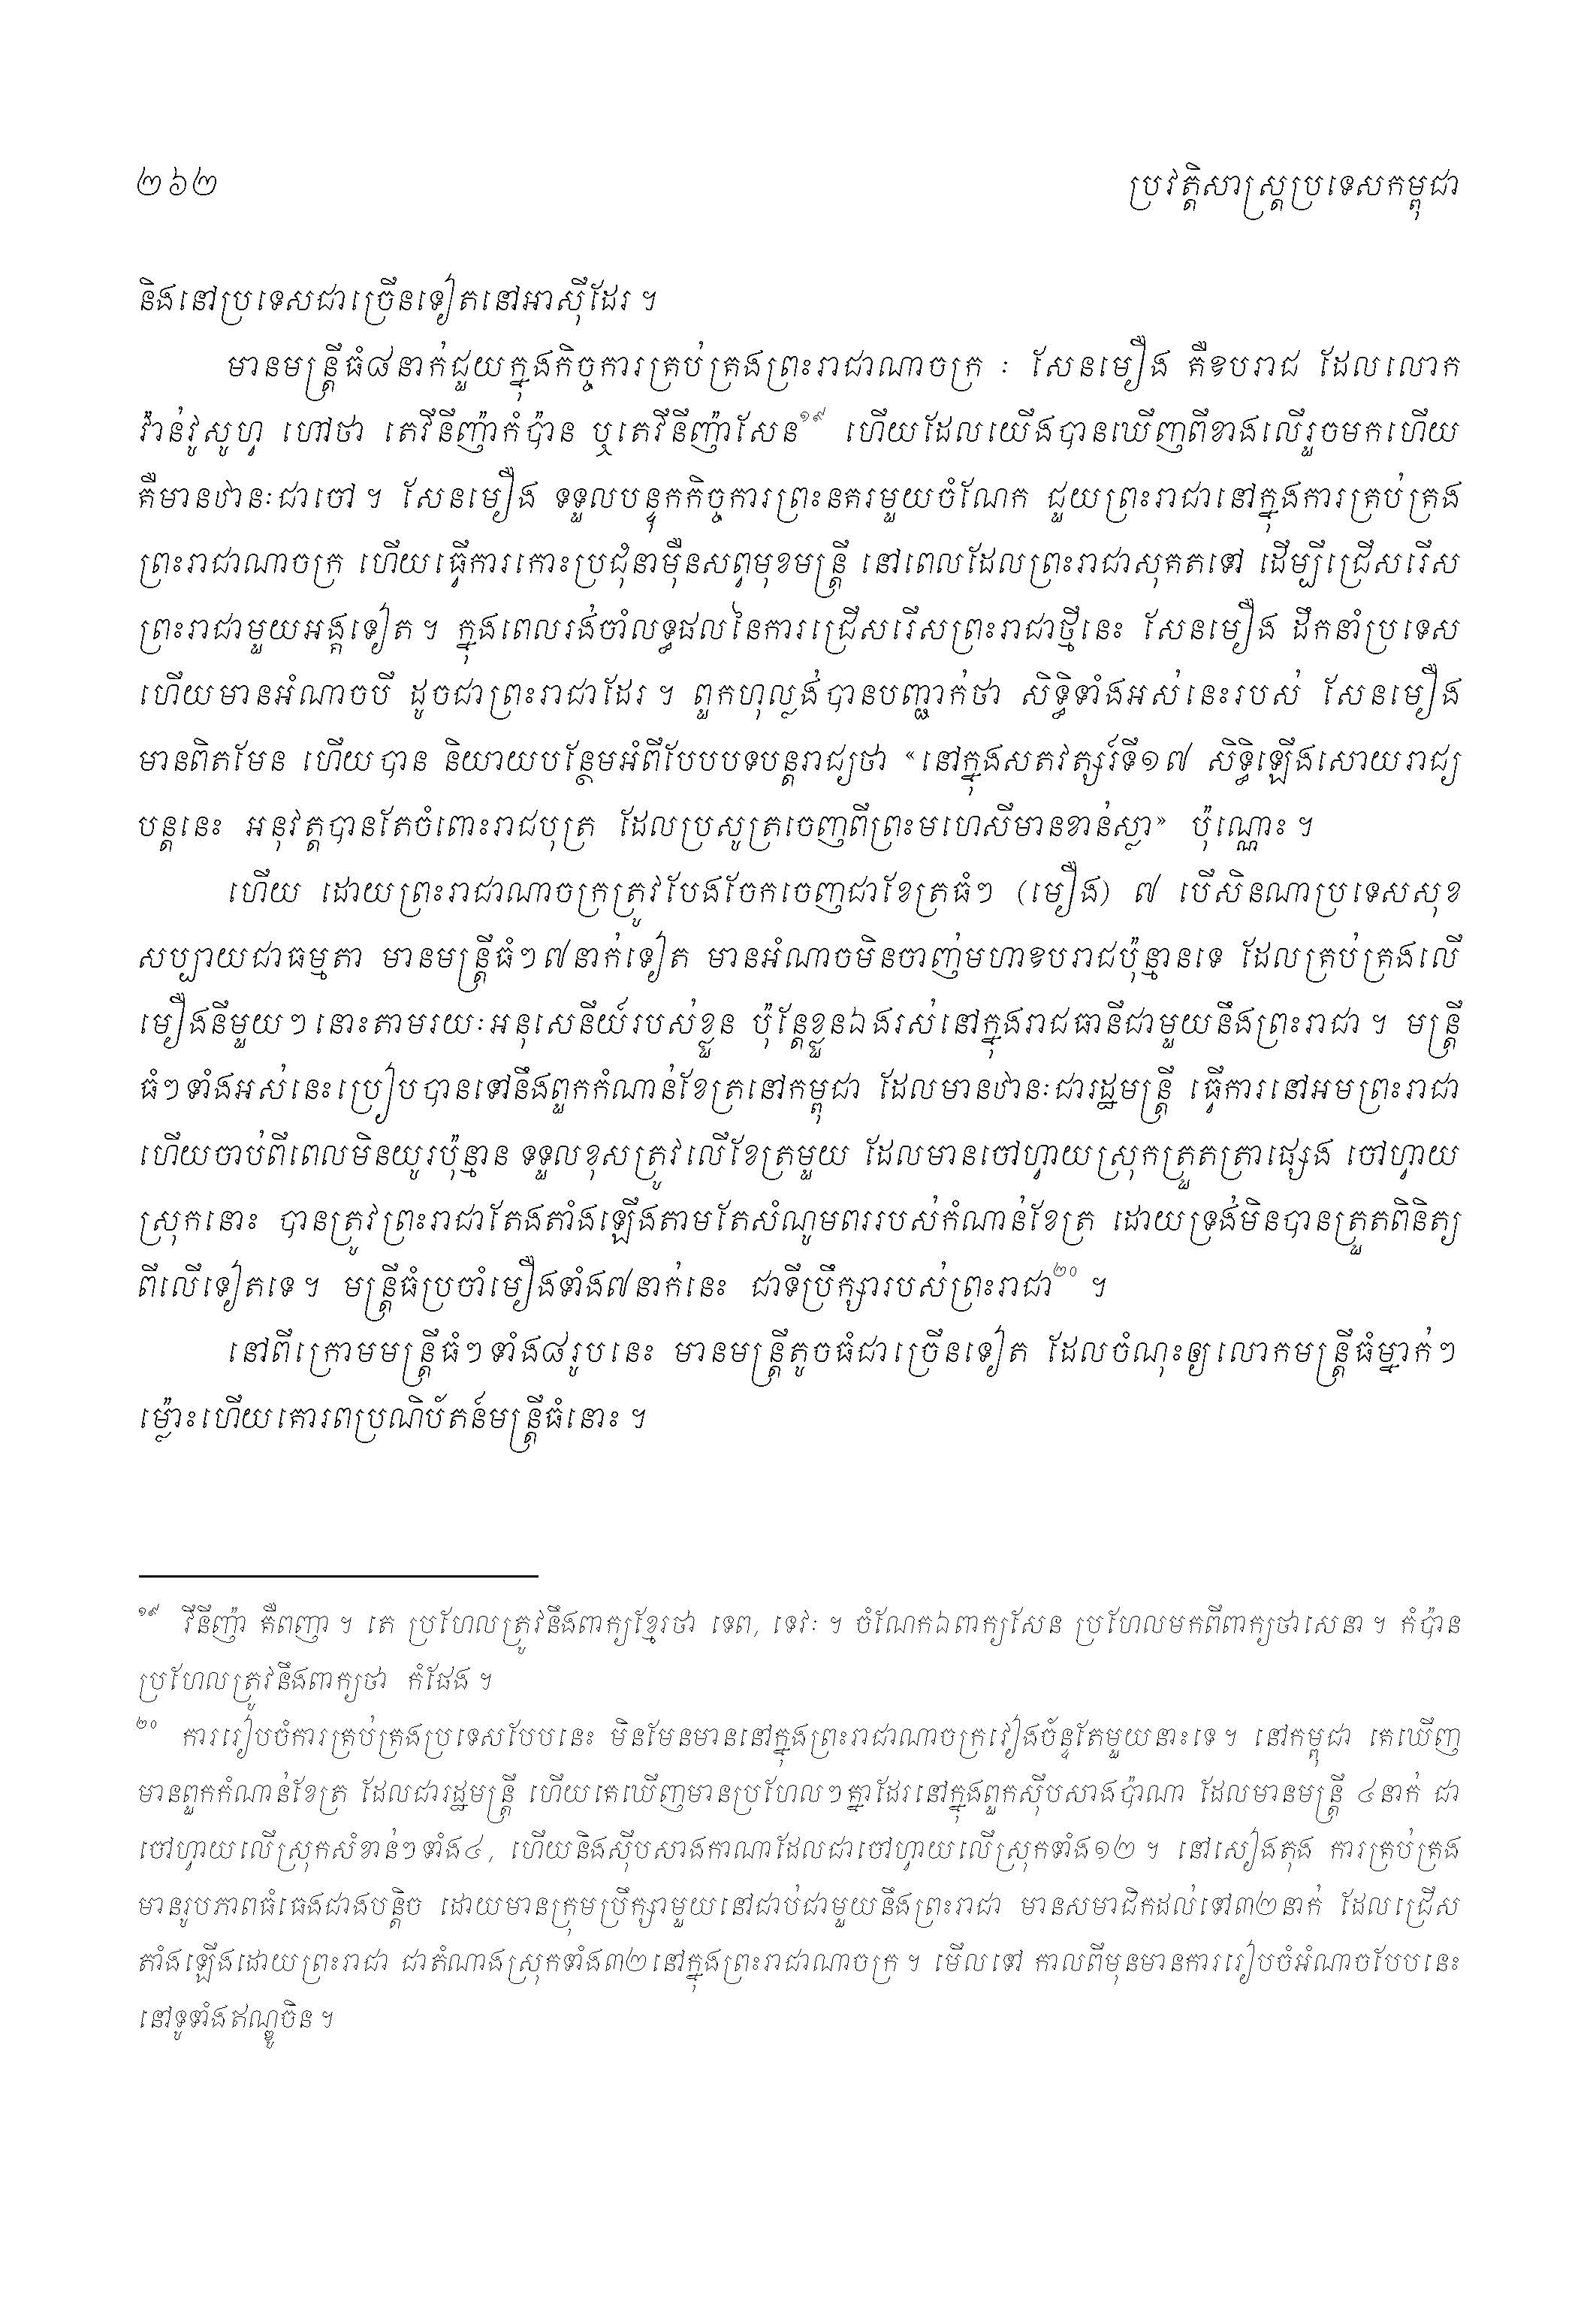 ២៦២
ប្រវត្តិសាស្ត្រប្រទេសកម្ពុជា
និងនៅប្រទេសជាច្រើនទៀតនៅអាស៊ីដែរ ។
មានមន្ត្រីធំ៨នាក់ជួយក្នុងកិច្ចការគ្រប់គ្រងព្រះរាជាណាចក្រ ៈ សែនមឿង គឺឧបរាជ ដែលលោក
វ៉ាន់វូសូហ្វ ហៅថា តេវីនីញ៉ាកំប៉ាន ឬតេវីនីញ៉ាសែន១៩ ហើយដែលយើងបានឃើញពីខាងលើរួចមកហើយ
គឺមានឋានៈជាចៅ ។ សែនមឿង ទទួលបន្ទុកកិច្ចការព្រះនគរមួយចំណែក ជួយព្រះរាជានៅក្នុងការគ្រប់គ្រង
ព្រះរាជាណាចក្រ ហើយធ្វើការកោះប្រជុំនាម៉ឺនសព្វមុខមន្ត្រី នៅពេលដែលព្រះរាជាសុគតទៅ ដើម្បីជ្រើសរើស
ព្រះរាជាមួយអង្គទៀត ។ ក្នុងពេលរង់ចាំលទ្ធផលនៃការជ្រើសរើសព្រះរាជាថ្មីនេះ សែនមឿង ដឹកនាំប្រទេស
ហើយមានអំណាចបី ដូចជាព្រះរាជាដែរ ។ ពួកហុល្លង់បានបញ្ជាក់ថា សិទ្ធិទាំងអស់នេះរបស់ សែនមឿង
មានពិតមែន ហើយបាន និយាយបន្ថែមអំពីបែបបទបន្តរាជ្យថា «នៅក្នុងសតវត្សរ៍ទី១៧ សិទ្ធិឡើងសោយរាជ្យ
បន្តនេះ អនុវត្តបានតែចំពោះរាជបុត្រ ដែលប្រសូត្រចេញពីព្រះមហេសីមានខាន់ស្លា» ប៉ុណ្ណោះ ។
ហើយ ដោយព្រះរាជាណាចក្រត្រូវបែងចែកចេញជាខែត្រធំៗ (មឿង) ៧ បើសិនណាប្រទេសសុខ
សប្បាយជាធម្មតា មានមន្ត្រីធំៗ៧នាក់ទៀត មានអំណាចមិនចាញ់មហាឧបរាជប៉ុន្មានទេ ដែលគ្រប់គ្រងលើ
មឿងនីមួយៗនោះតាមរយៈអនុសេនីយ៍របស់ខ្លួន ប៉ុន្តែខ្លួនឯងរស់នៅក្នុងរាជធានីជាមួយនឹងព្រះរាជា ។ មន្ត្រី
ធំៗទាំងអស់នេះប្រៀបបានទៅនឹងពួកកំណាន់ខែត្រនៅកម្ពុជា ដែលមានឋានៈជារដ្ឋមន្ត្រី ធ្វើការនៅអមព្រះរាជា
ហើយចាប់ពីពេលមិនយូរប៉ុន្មាន ទទួលខុសត្រូវលើខែត្រមួយ ដែលមានចៅហ្វាយស្រុកត្រួតត្រាផ្សេង ចៅហ្វាយ
ស្រុកនោះ បានត្រូវព្រះរាជាតែងតាំងឡើងតាមតែសំណូមពររបស់កំណាន់ខែត្រ ដោយទ្រង់មិនបានត្រួតពិនិត្យ
ពីលើទៀតទេ ។ មន្ត្រីធំប្រចាំមឿងទាំង៧នាក់នេះ ជាទីប្រឹក្សារបស់ព្រះរាជា២០ ។
នៅពីក្រោមមន្ត្រីធំៗទាំង៨រូបនេះ មានមន្ត្រីតូចធំជាច្រើនទៀត ដែលចំណុះឲ្យលោកមន្ត្រីធំម្នាក់ៗ
ម្ល៉ោះហើយគោរពប្រណិប័តន៍មន្ត្រីធំនោះ ។
១៩ វីនីញ៉ា គឺពញា ។ តេ ប្រហែលត្រូវនឹងពាក្យខ្មែរថា ទេព, ទេវៈ ។ ចំណែកឯពាក្យសែន ប្រហែលមកពីពាក្យថាសេនា ។ កំប៉ាន
ប្រហែលត្រូវនឹងពាក្យថា កំផែង ។
២០ ការរៀបចំការគ្រប់គ្រងប្រទេសបែបនេះ មិនមែនមាននៅក្នុងព្រះរាជាណាចក្រវៀងច័ន្ទតែមួយនាះទេ ។ នៅកម្ពុជា គេឃើញ
មានពួកកំណាន់ខែត្រ ដែលជារដ្ឋមន្ត្រី ហើយគេឃើញមានប្រហែលៗគ្នាដែរនៅក្នុងពួកស៊ីបសាងប៉ាណា ដែលមានមន្ត្រី ៤នាក់ ជា
ចៅហ្វាយលើស្រុកសំខាន់ៗទាំង៤, ហើយនិងស៊ីបសាងកាណាដែលជាចៅហ្វាយលើស្រុកទាំង១២ ។ នៅសៀងតុង ការគ្រប់គ្រង
មានរូបភាពធំធេងជាងបន្តិច ដោយមានក្រុមប្រឹក្សាមួយនៅជាប់ជាមួយនឹងព្រះរាជា មានសមាជិកដល់ទៅ៣២នាក់ ដែលជ្រើស
តាំងឡើងដោយព្រះរាជា ជាតំណាងស្រុកទាំង៣២នៅក្នុងព្រះរាជាណាចក្រ ។ មើលទៅ កាលពីមុនមានការរៀបចំអំណាចបែបនេះ
នៅទូទាំងឥណ្ឌូចិន ។